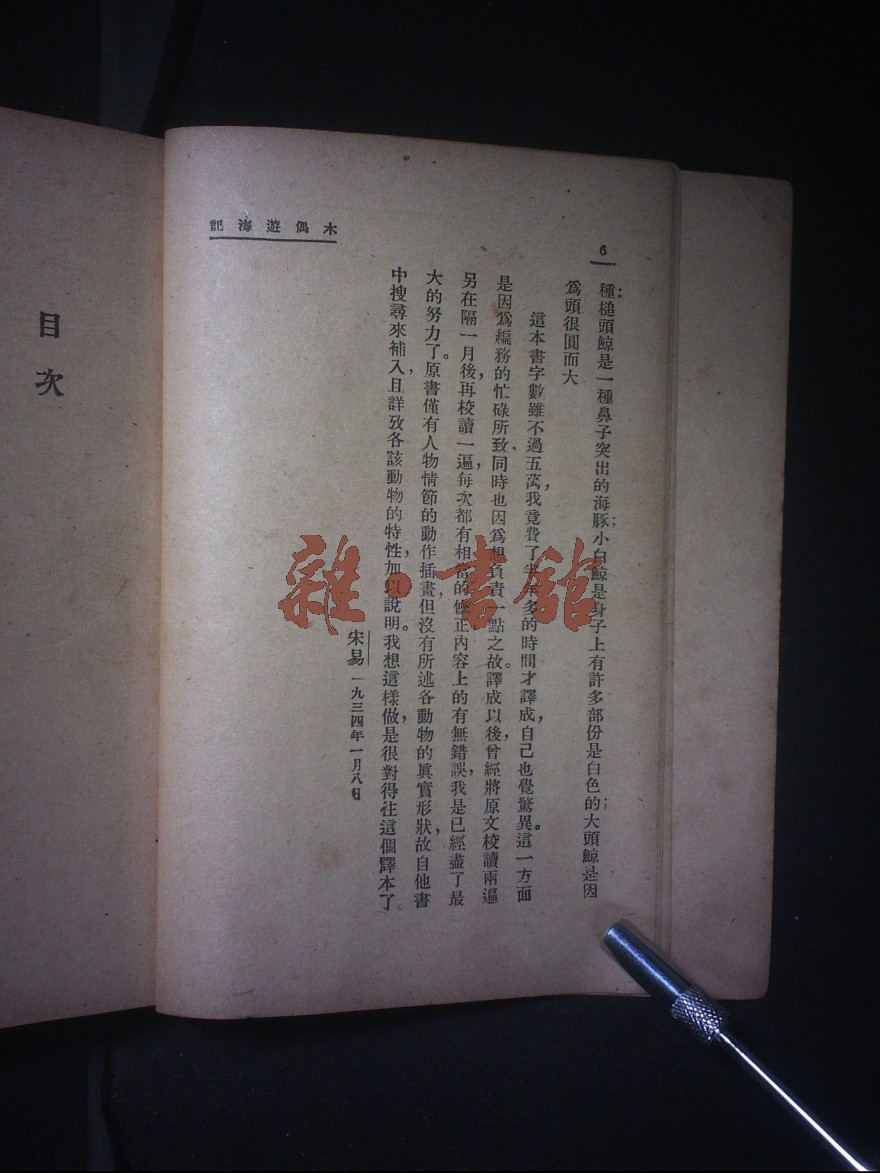 木偶遊海記
6
種槌頭鯨是一種鼻子突出的海豚；小白鯨是身子上有許多部份是白色的；大頭鯨是因
爲頭很圓而大
這本書字數雖不過五萬，我竟費了半年多的時間才譯成，自己也覺驚異。這一方面
是因爲編務的忙碌所致，同時也因爲想負責一點之故。譯成以後，曾經將原文校讀兩遍
另在隔一月後，再校讀一遍，每次都有相當的修正，內容上的有無錯誤，我是已經盡了最
大的努力了。原書僅有人物情節的動作插畫，但沒有所述各動物的眞實形狀，故自他書
中搜尋來補入，且詳攷各該動物的特性，加以說明。我想這樣做，是很對得住這個譯本了。
宋易 一九三四年一月八日
目次
雜·書館